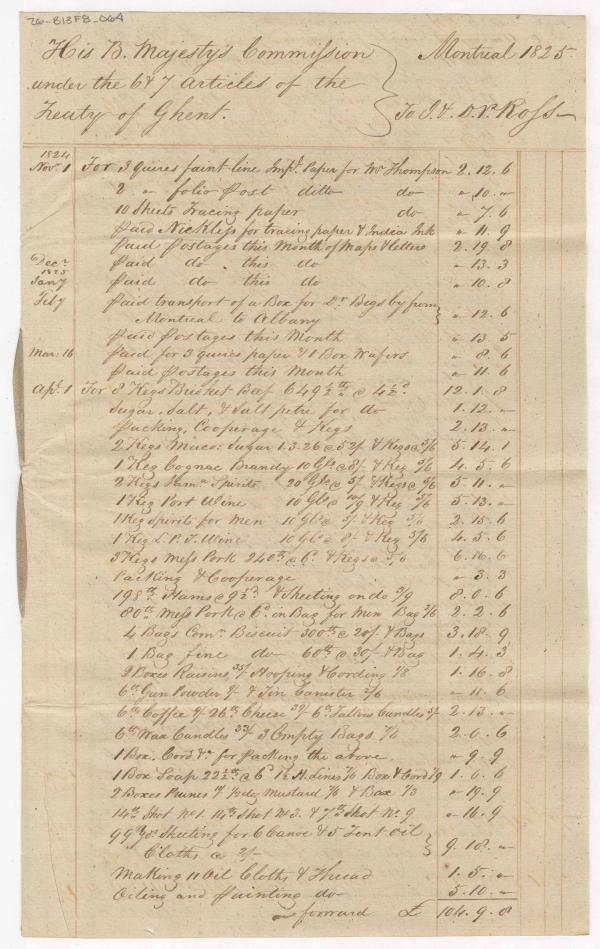 26-B13F8_064
His B. Majesty's Commission
under the 6 & 7 articles of the
Treaty of Ghent.
Montreal 1825
To J. & D. Ross
1824
Nov. 1 For 3 quires faint line Imp.l Paper for Mr Thompson 2.12.6
2 " folio Post ditto do " 10 "
10 Sheets Tracing paper do " 7.6
Paid Nickless for tracing paper & India Ink " 11.9
Paid Postages this Month of Maps & letters 2.19.8
Decr Paid do this do " 13.3
1825
Jany Paid do this do " 10.8
Feby Paid transport of a Box for Dr Bigsby from
Montreal to Albany " 12.6
Paid Postages this Month " 13.5
Mar: 16 Paid for 3 quires paper & 1 Box Wafers " 8.6
Paid Postages this Month " 11.6
Apl. 1 For 8 Kegs Brisket Beef 649½ lb @ 4½d 12.1.8
Sugar, Salt, & Salt petre for do 1.12 "
Packing, Cooperage & Kegs 2.13 "
2 Kegs Musco: Sugar 1.3.26 @ 52/ & Kegs @ 3/6 5.14.1
1 Keg Cognac Brandy 10 Gls @ 8/ & Keg 5/6 4.5.6
2 Kegs Jamn Spirits 20 Gls @ 5/ & Kegs @ 5/6 5.11 "
1 Keg Port Wine 10 Gls @ 10/9 & Keg 5/6 5.13 "
1 Keg Spirits for Men 10 Gls @ 5/ & Keg 5/6 2.15.6
1 Keg L. P. T. Wine 10 Gls @ 8/ & Keg 5/6 4.5.6
3 Kegs Mess Pork 240 lb @ 6d & Kegs @ 5/6 6.16.6
Packing & Cooperage " 3.3
198 lb Hams @ 9½d & Sheeting on do 3/9 8.0.6
80 lb Mess Pork @ 6d in Bag for Men Bag 2/6 2.2.6
4 Bags Comn Biscuit 300 lb @ 20/ & Bags 3.18.9
1 Bag fine do 60 lb @ 30/ & Bag 1.4.3
2 Boxes Raisins 35/ Hooping & Cording 1/8 1.16.8
6 lb Gun Powder 9/ & Tin Canister 2/6 " 11.6
6 lb Coffee 9/ 26 lb Cheese 39/ 6 lb Tallow Candles 5/ 2.13 "
6 lb Wax Candles 33/ 3 Empty Bags 7/6 2.0.6
1 Box, Cord &c for packing the above " 9.9
1 Box Soap 22½ lb @ 6d H. Lines 7/6 Box & Cord 1/9 1.0.6
2 Boxes Prunes Mustard 7/6 & Box 1/3 " 19.9
14 lb Shot No 1. 14 lb Shot No 3. & 7 lb Shot No 9 " 16.9
99 yds Sheeting for 6 Canoe & 5 Tent Oil
Cloths @ 2/ 9.18 "
Making 11 Oil Cloths & Thread 1.5 "
Oiling and Painting do 5.10 "
forward £ 104.9.8